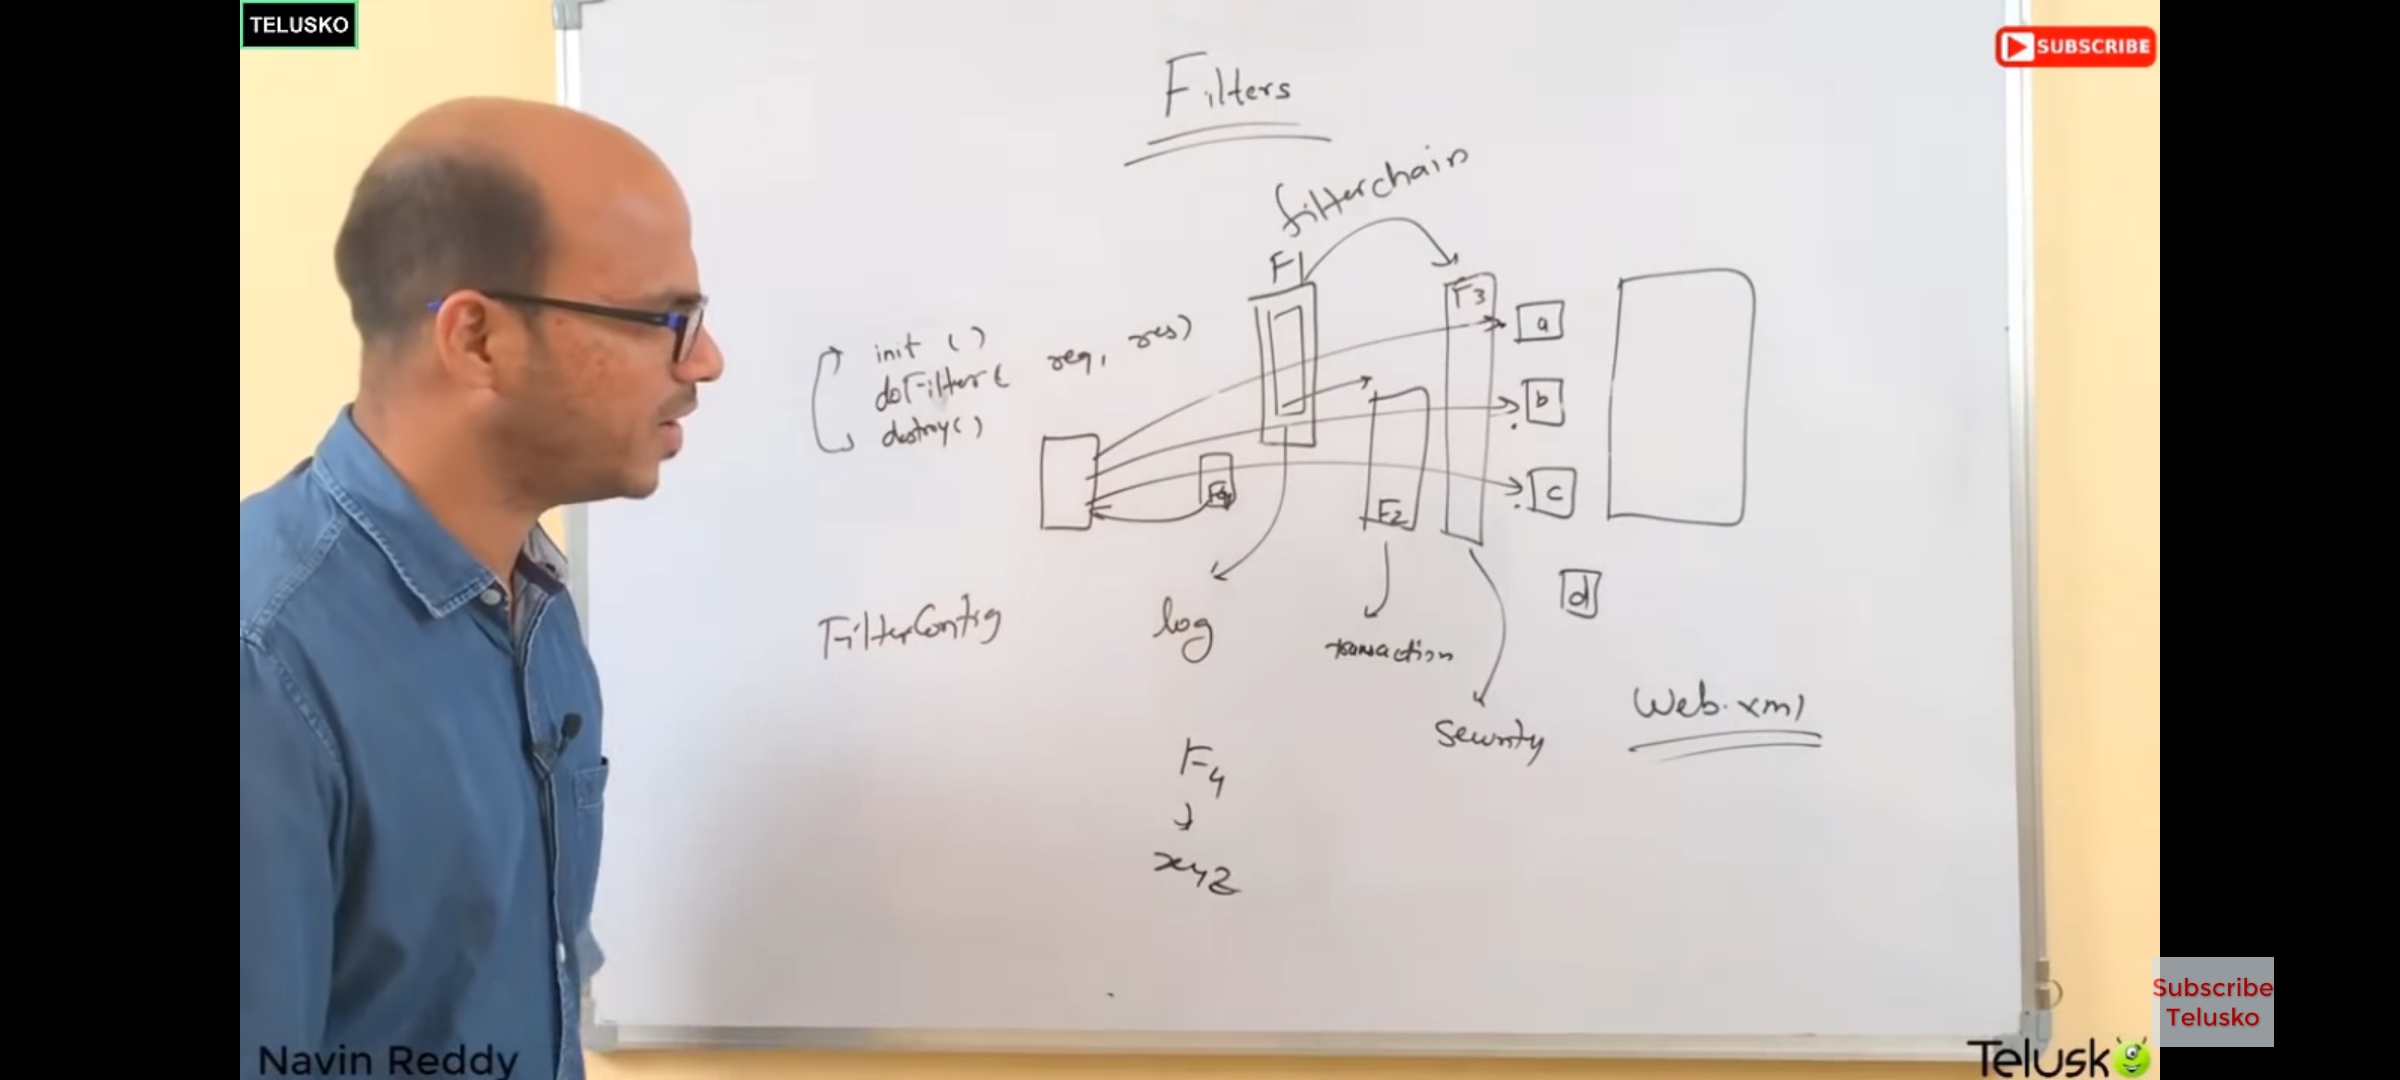 TELUSKO
SUBSCRIBE
Filters
filterchain
F1
F3
a
init ( )
doFilter ( req, res)
destroy ( )
b
F4
F2
c
d
FilterConfig
log
transaction
Security
Web.xml
F4
xyz
Subscribe
Telusko
Navin Reddy
Telusko